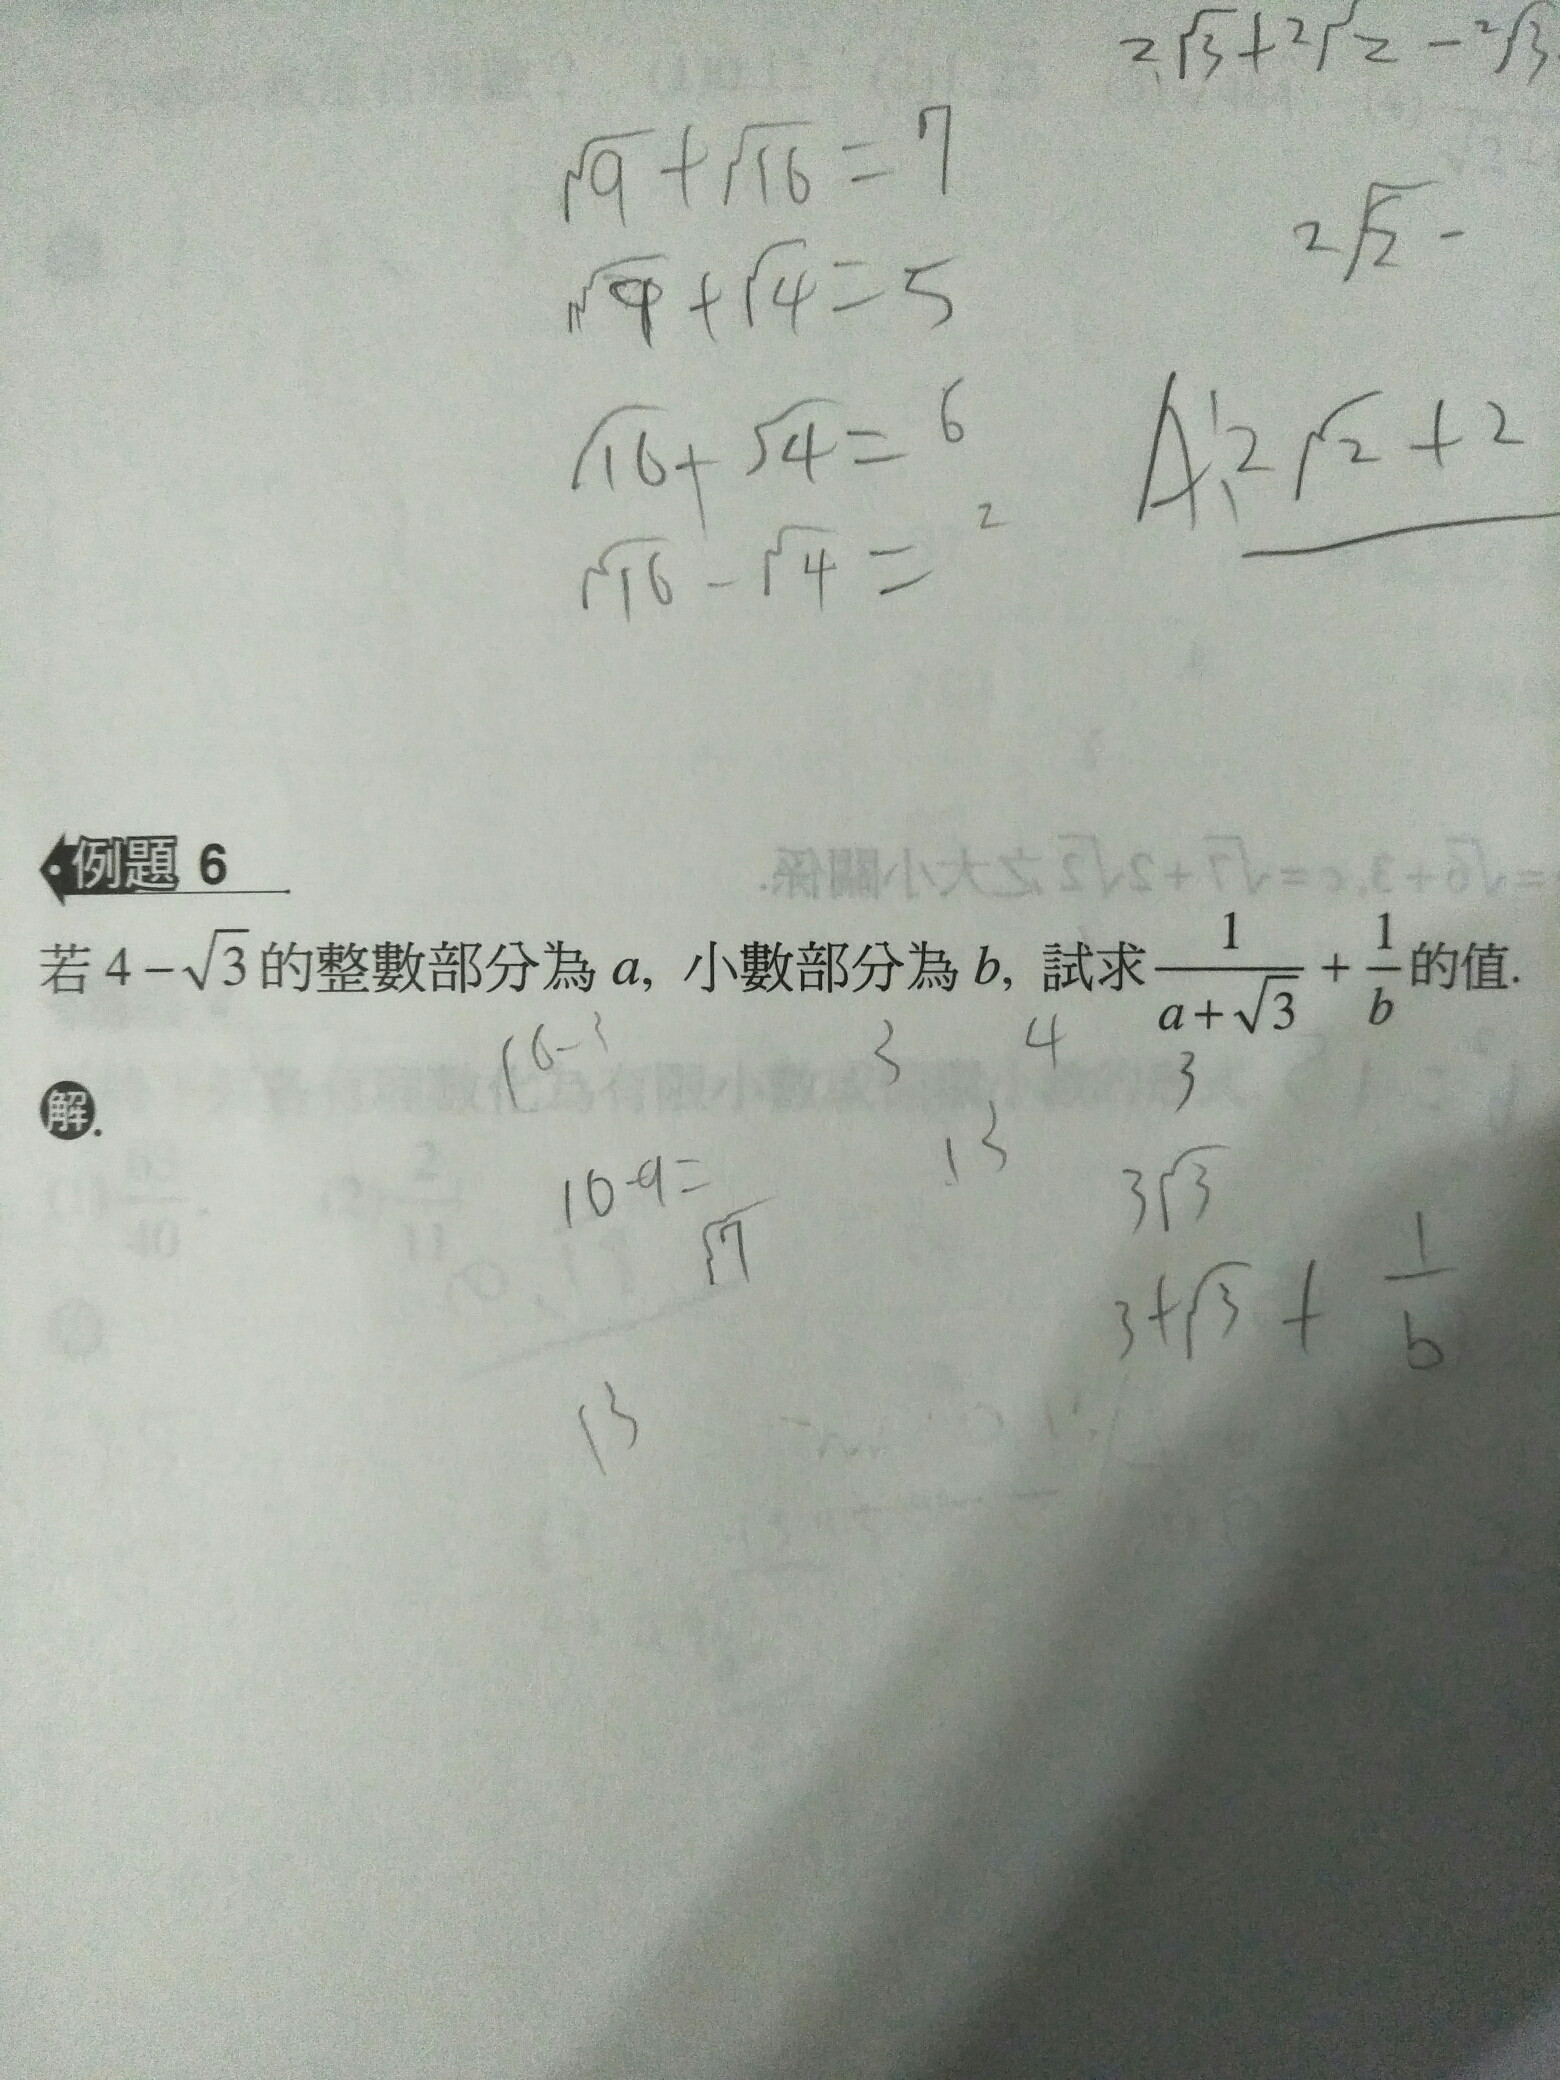 2√3+2√2-2√3
√9+√16=7
2√2-
√9+√4=5
√16+√4=6
A:2√2+2
√16-√4=2
例題 6
若 4-√3 的整數部分為 a, 小數部分為 b, 試求 1/(a+√3) + 1/b 的值.
16-3 3 4 3
解.
13
10-9= 3√3
√7
3+√3+ 1/b
13